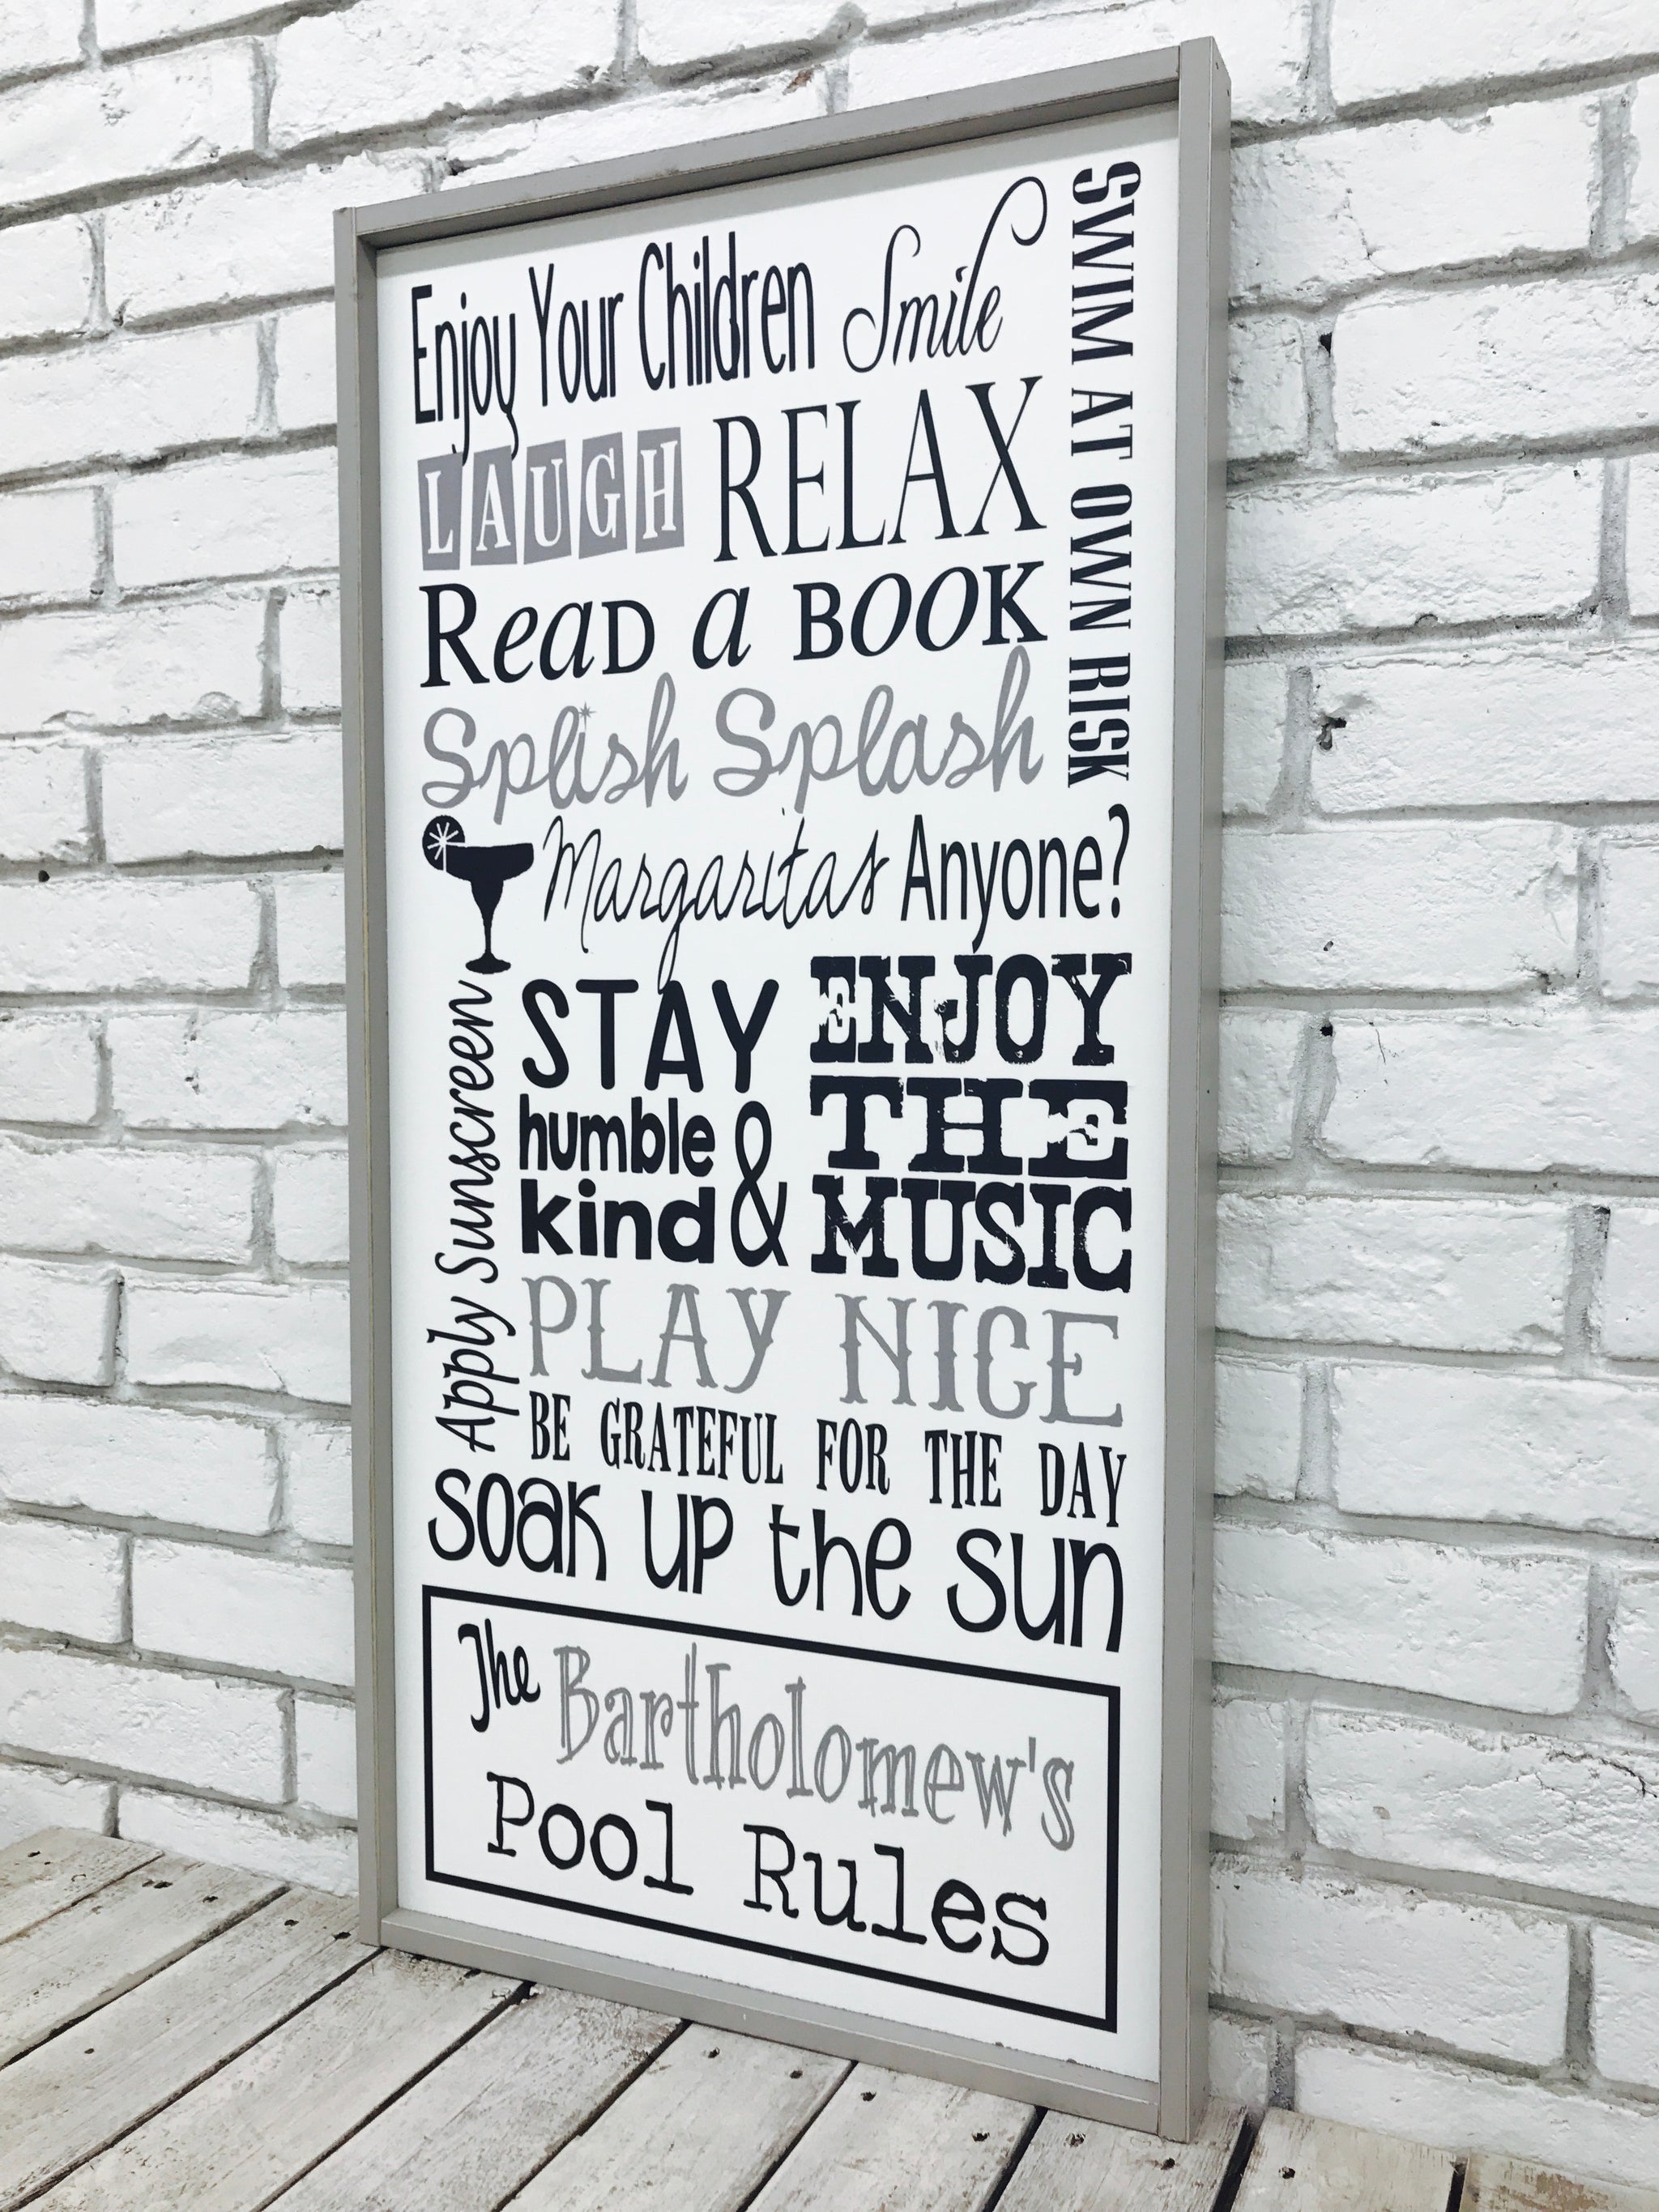 Enjoy Your Children Smile
SWIM AT OWN RISK
LAUGH RELAX
ReaD a BOOK
Splish Splash
Margaritas Anyone?
Apply Sunscreen
STAY
humble &
kind
ENJOY
THE
MUSIC
PLAY NICE
BE GRATEFUL FOR THE DAY
soak up the sun
The Bartholomew's
Pool Rules